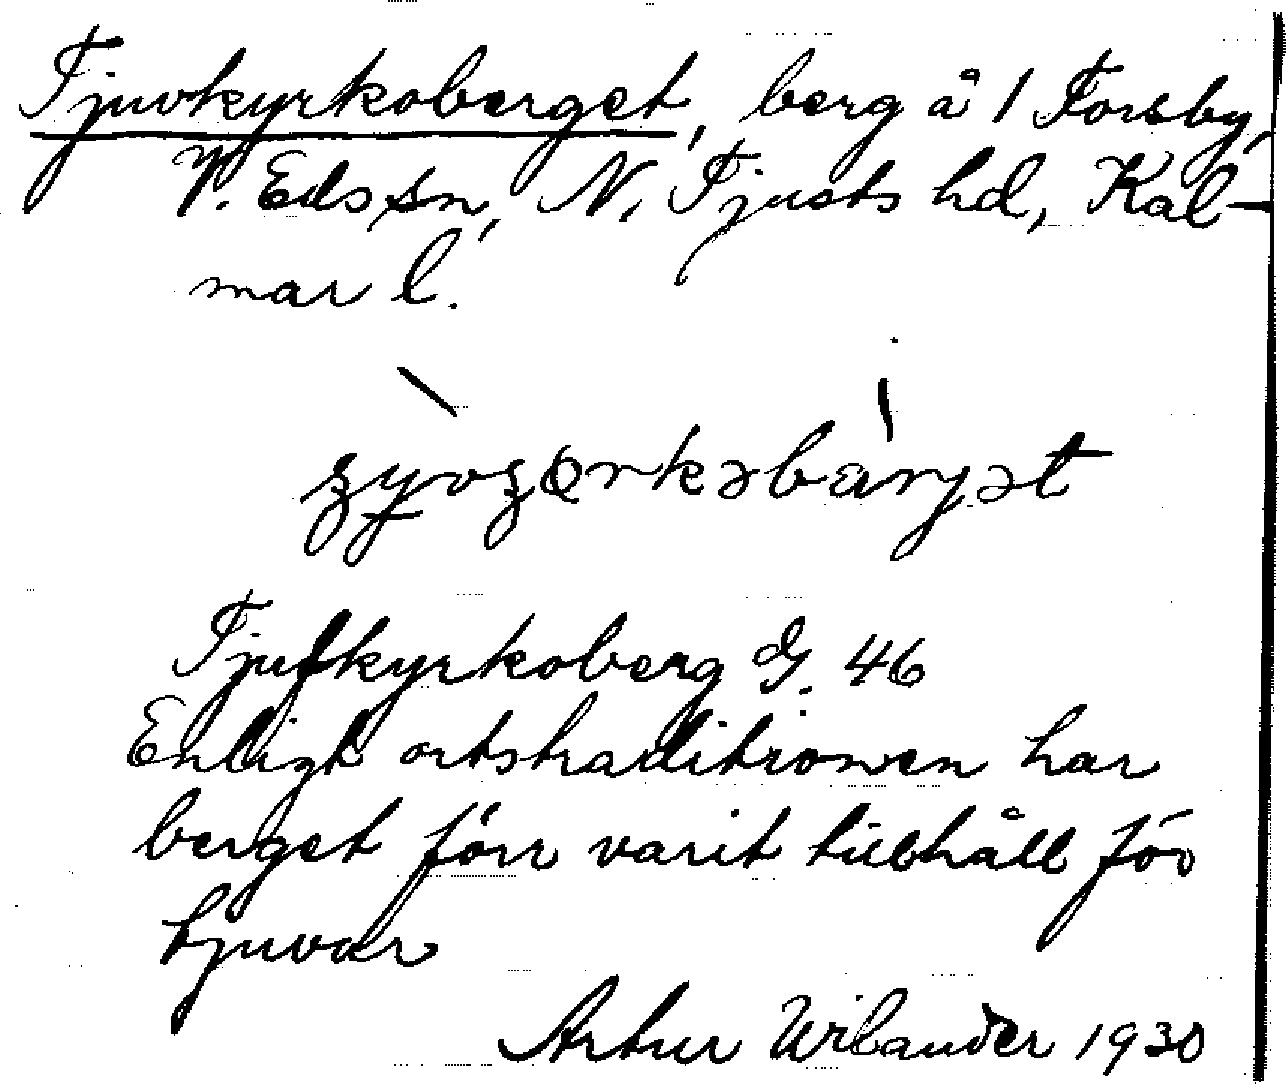 Tjuvkyrkoberget, berg å 1 Forsby,
V. Eds sn, N. Tjusts hd, Kal-
mar l.
Tjufkyrkoberg G. 46
Enligt ortstraditionen har
berget förr varit tillhåll för
tjuvar
Artur Wilander 1930